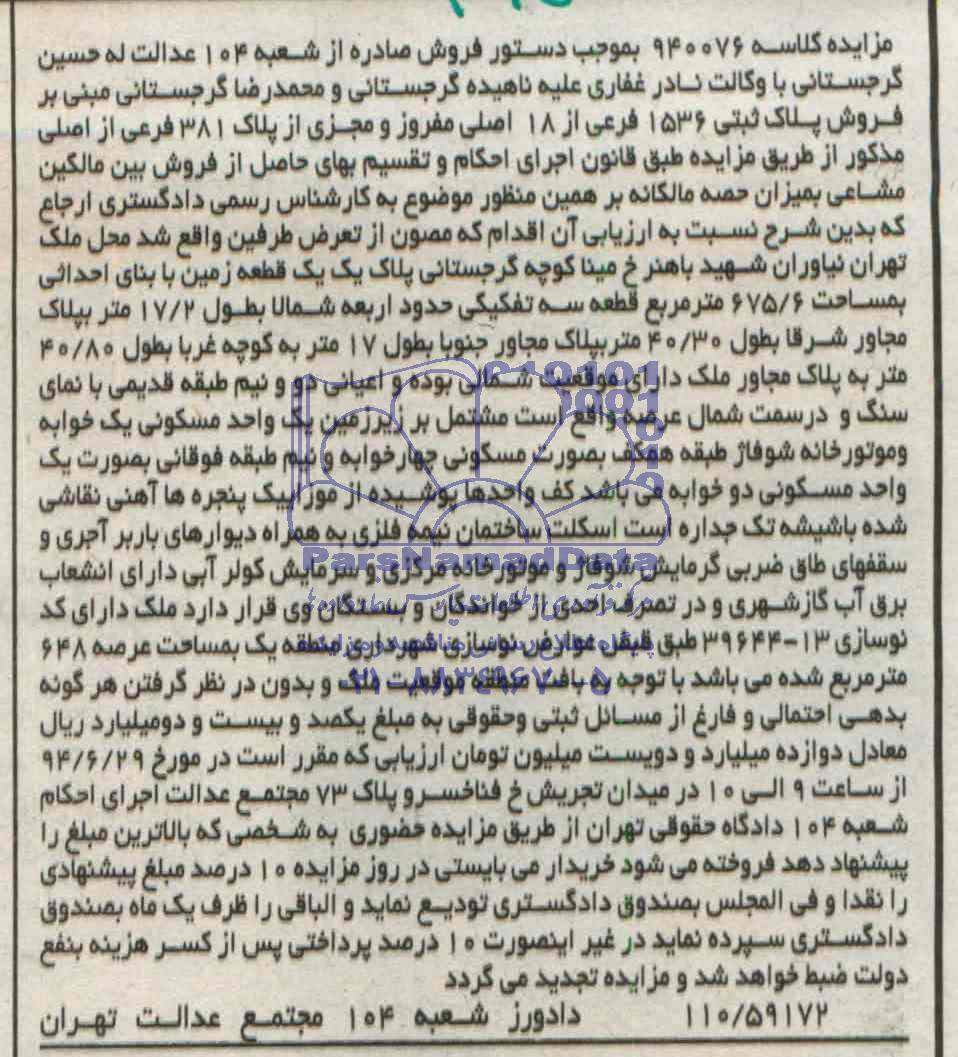 مزایده کلاسه ۹۴۰۰۷۶ بموجب دستور فروش صادره از شعبه ۱۰۴ عدالت له حسین
گرجستانی با وکالت نادر غفاری علیه ناهیده گرجستانی و محمدرضا گرجستانی مبنی بر
فروش پلاک ثبتی ۱۵۳۶ فرعی از ۱۸ اصلی مفروز و مجزی از پلاک ۳۸۱ فرعی از اصلی
مذکور از طریق مزایده طبق قانون اجرای احکام و تقسیم بهای حاصل از فروش بین مالکین
مشاعی بمیزان حصه مالکانه بر همین منظور موضوع به کارشناس رسمی دادگستری ارجاع
که بدین شرح نسبت به ارزیابی آن اقدام که مصون از تعرض طرفین واقع شد محل ملک
تهران نیاوران شهید باهنر خ مینا کوچه گرجستانی پلاک یک یک قطعه زمین با بنای احداثی
بمساحت ۶۷۵/۶ مترمربع قطعه سه تفکیکی حدود اربعه شمالا بطول ۱۷/۲ متر بپلاک
مجاور شرقا بطول ۴۰/۳۰ متر بپلاک مجاور جنوبا بطول ۱۷ متر به کوچه غربا بطول ۴۰/۸۰
متر به پلاک مجاور ملک دارای موقعیت شمالی بوده و اعیانی دو و نیم طبقه قدیمی با نمای
سنگ و درسمت شمال عرصه واقع است مشتمل بر زیرزمین یک واحد مسکونی یک خوابه
وموتورخانه شوفاژ طبقه همکف بصورت مسکونی چهارخوابه و نیم طبقه فوقانی بصورت یک
واحد مسکونی دو خوابه می باشد کف واحدها پوشیده از موزاییک پنجره ها آهنی نقاشی
شده باشیشه تک جداره است اسکلت ساختمان نیمه فلزی به همراه دیوارهای باربر آجری و
ParsNamadData
سقفهای طاق ضربی گرمایش شوفاژ و موتورخانه مرکزی و سرمایش کولر آبی دارای انشعاب
برق آب گازشهری و در تصرف احدی از خواندگان و بستگان وی قرار دارد ملک دارای کد
نوسازی ۱۳-۳۹۶۴۴ طبق قبض عوارض نوسازی شهرداری منطقه یک بمساحت عرصه ۶۴۸
مترمربع شده می باشد با توجه به بافت منطقه موقعیت ملک و بدون در نظر گرفتن هر گونه
بدهی احتمالی و فارغ از مسائل ثبتی وحقوقی به مبلغ یکصد و بیست و دومیلیارد ریال
معادل دوازده میلیارد و دویست میلیون تومان ارزیابی که مقرر است در مورخ ۹۴/۶/۲۹
از ساعت ۹ الی ۱۰ در میدان تجریش خ فناخسرو پلاک ۷۳ مجتمع عدالت اجرای احکام
شعبه ۱۰۴ دادگاه حقوقی تهران از طریق مزایده حضوری به شخصی که بالاترین مبلغ را
پیشنهاد دهد فروخته می شود خریدار می بایستی در روز مزایده ۱۰ درصد مبلغ پیشنهادی
را نقدا و فی المجلس بصندوق دادگستری تودیع نماید و الباقی را ظرف یک ماه بصندوق
دادگستری سپرده نماید در غیر اینصورت ۱۰ درصد پرداختی پس از کسر هزینه بنفع
دولت ضبط خواهد شد و مزایده تجدید می گردد
۱۱۰/۵۹۱۷۲ دادورز شعبه ۱۰۴ مجتمع عدالت تهران